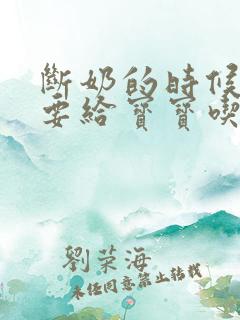 斷奶的時候
要給寶寶喫
劉榮海
未經同意禁止轉載